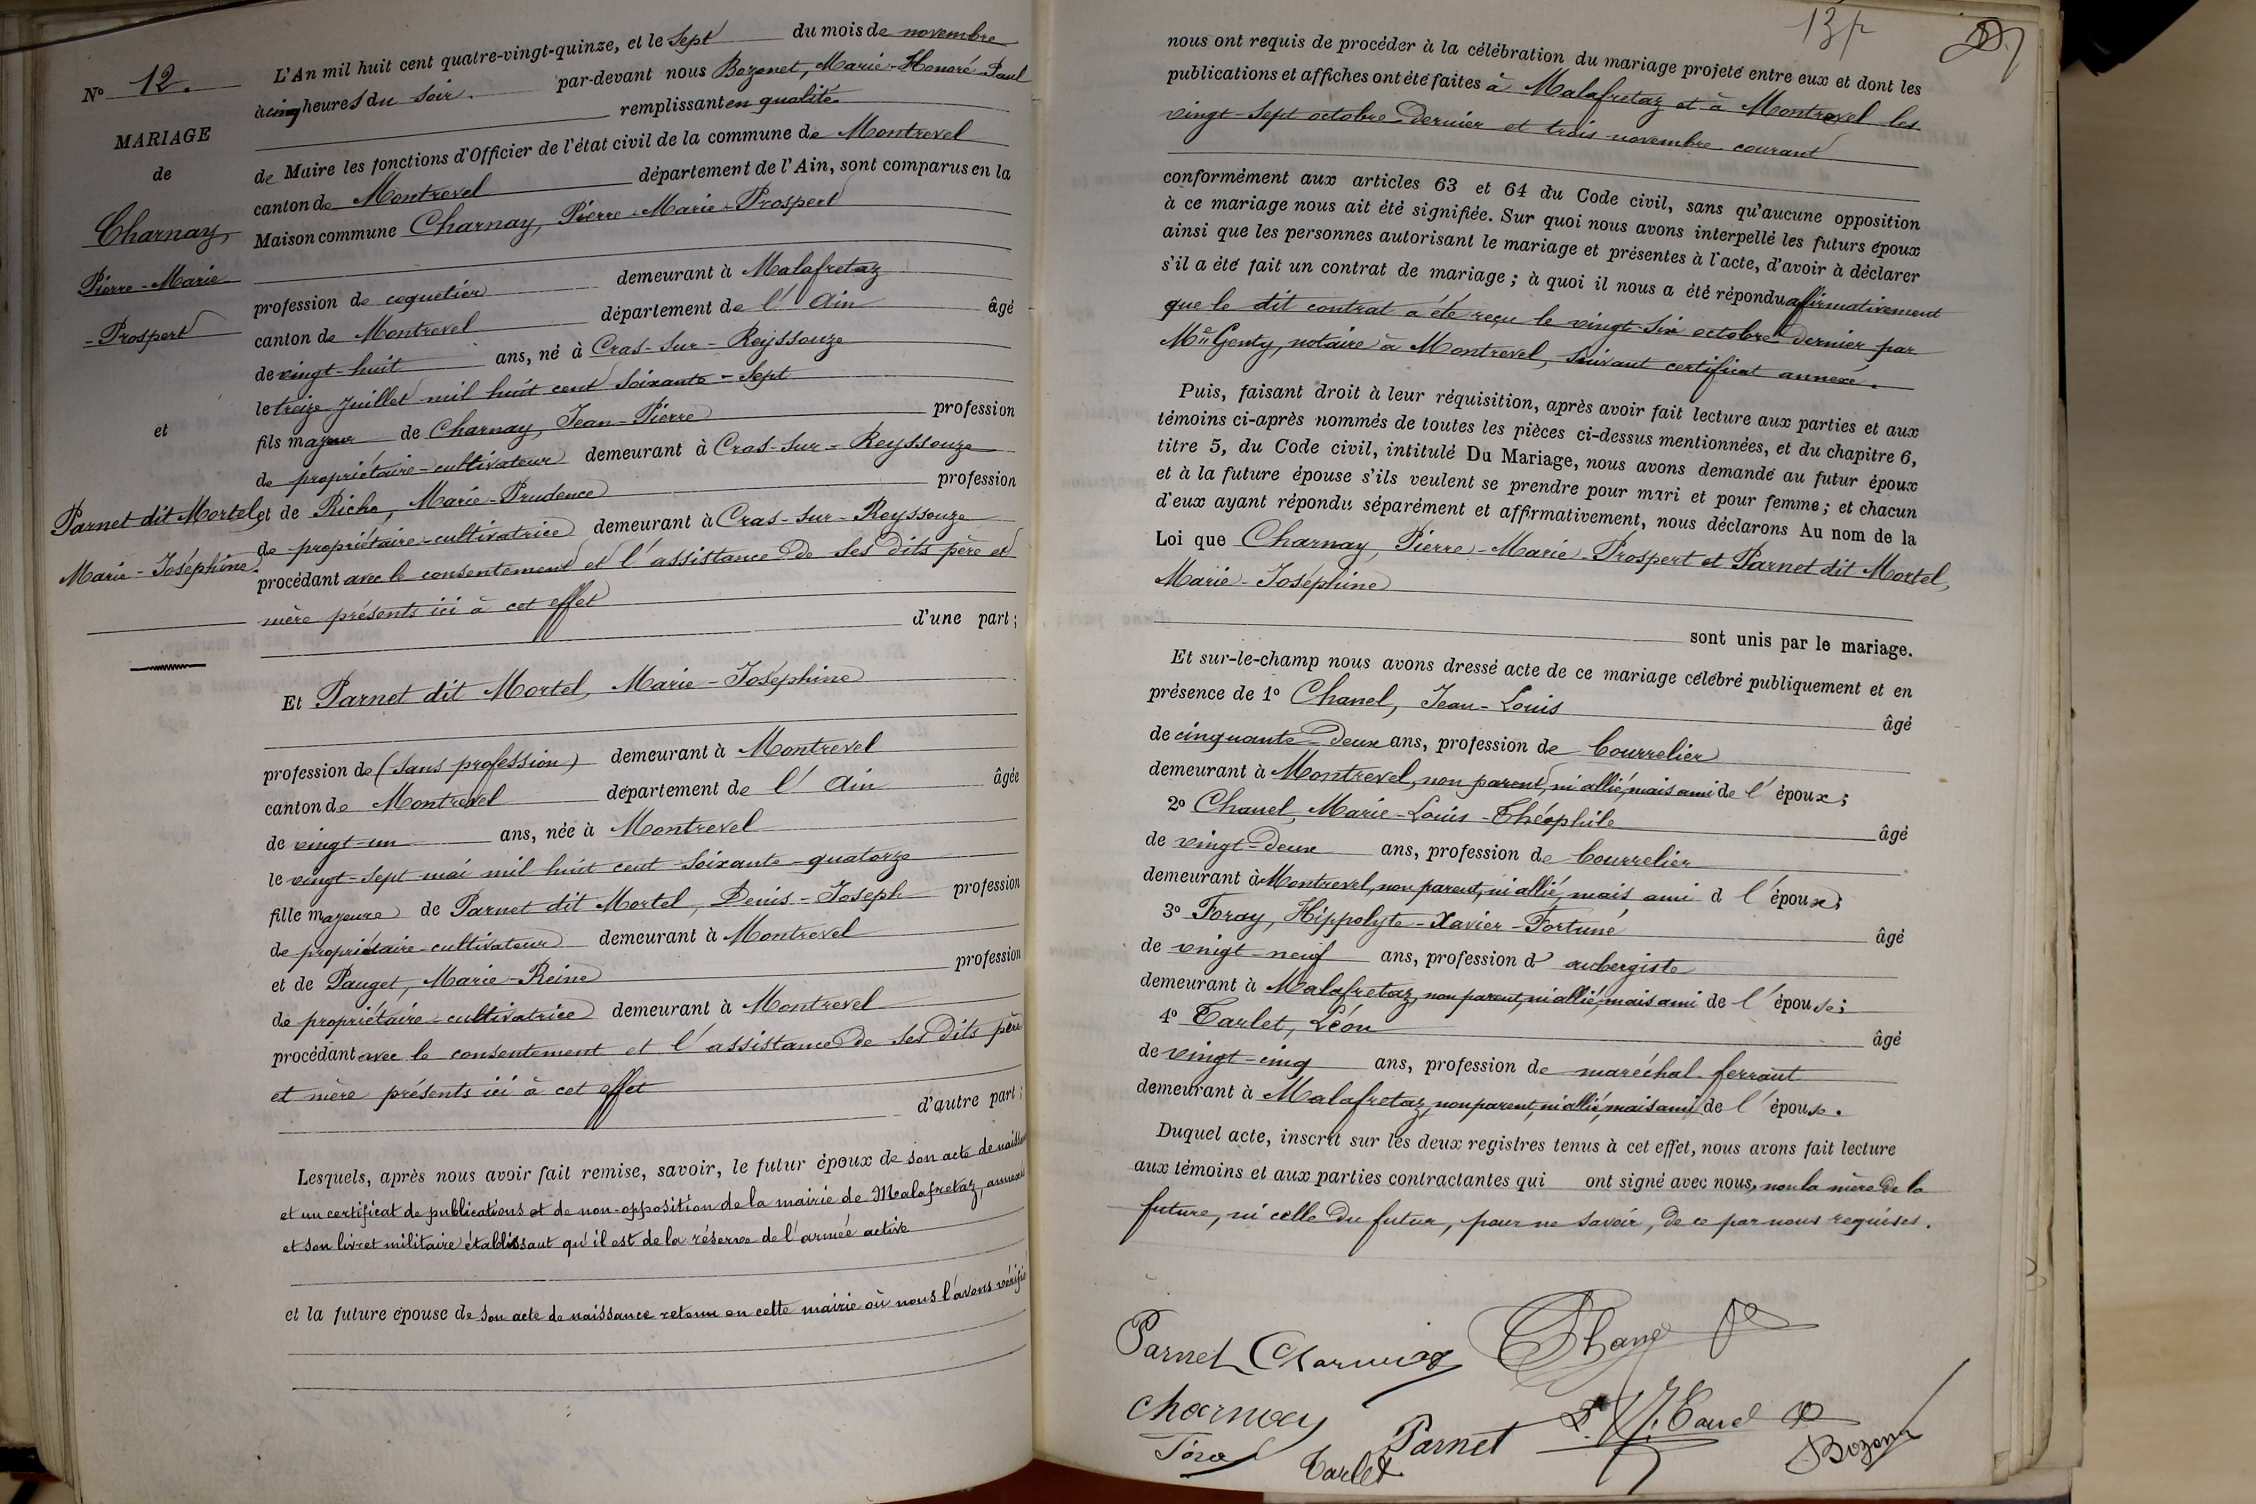 N° 12.
MARIAGE
de
Charnay,
Pierre-Marie
-Prospert
et
Parnet dit Mortel,
Marie-Joséphine.
L'An mil huit cent quatre-vingt-quinze, et le sept du mois de novembre
à cinq heures du soir. par-devant nous Bozonet, Marie-Honoré-Paul
remplissant en qualité
de Maire les fonctions d'Officier de l'état civil de la commune de Montrevel
canton de Montrevel département de l'Ain, sont comparus en la
Maison commune Charnay, Pierre-Marie-Prospert
profession de coquetier demeurant à Malafretaz
canton de Montrevel département de l'Ain âgé
de vingt-huit ans, né à Cras-sur-Reyssouze
le treize Juillet mil huit cent soixante-sept
fils majeur de Charnay, Jean-Pierre profession
de propriétaire-cultivateur demeurant à Cras-sur-Reyssouze
et de Riche, Marie-Prudence profession
de propriétaire-cultivatrice demeurant à Cras-sur-Reyssouze
procédant avec le consentement et l'assistance de ses dits père et
mère présents ici à cet effet
d'une part;
Et Parnet dit Mortel, Marie-Joséphine
profession de (sans profession) demeurant à Montrevel
canton de Montrevel département de l'Ain âgée
de vingt-un ans, née à Montrevel
le vingt-sept mai mil huit cent soixante-quatorze
fille majeure de Parnet dit Mortel, Denis-Joseph profession
de propriétaire-cultivateur demeurant à Montrevel
et de Pauget, Marie-Reine profession
de propriétaire-cultivatrice demeurant à Montrevel
procédant avec le consentement et l'assistance de ses dits père
et mère présents ici à cet effet
d'autre part;
Lesquels, après nous avoir fait remise, savoir, le futur époux de son acte de
et un certificat de publications et de non-opposition de la mairie de Malafretaz, annexés
et son livret militaire établissant qu'il est de la réserve de l'armée active
et la future épouse de son acte de naissance retenu en cette mairie où nous l'avons vérifié
nous ont requis de procéder à la célébration du mariage projeté entre eux et dont les
publications et affiches ont été faites à Malafretaz et à Montrevel les
vingt-sept octobre dernier et trois novembre courant
conformément aux articles 63 et 64 du Code civil, sans qu'aucune opposition
à ce mariage nous ait été signifiée. Sur quoi nous avons interpellé les futurs époux
ainsi que les personnes autorisant le mariage et présentes à l'acte, d'avoir à déclarer
s'il a été fait un contrat de mariage; à quoi il nous a été répondu affirmativement
que le dit contrat a été reçu le vingt-six octobre dernier par
Me Genty, notaire à Montrevel, suivant certificat annexé.
Puis, faisant droit à leur réquisition, après avoir fait lecture aux parties et aux
témoins ci-après nommés de toutes les pièces ci-dessus mentionnées, et du chapitre 6,
titre 5, du Code civil, intitulé Du Mariage, nous avons demandé au futur époux
et à la future épouse s'ils veulent se prendre pour mari et pour femme; et chacun
d'eux ayant répondu séparément et affirmativement, nous déclarons Au nom de la
Loi que Charnay, Pierre-Marie-Prospert et Parnet dit Mortel,
Marie-Joséphine
sont unis par le mariage.
Et sur-le-champ nous avons dressé acte de ce mariage célébré publiquement et en
présence de 1° Chanel, Jean-Louis âgé
de cinquante-deux ans, profession de bourrelier
demeurant à Montrevel, non parent, ni allié, mais ami de l'époux;
2° Chanel, Marie-Louis-Théophile âgé
de vingt-deux ans, profession de bourrelier
demeurant à Montrevel, non parent, ni allié, mais ami d l'époux;
3° Foray, Hippolyte-Xavier-Fortuné âgé
de vingt-neuf ans, profession d'aubergiste
demeurant à Malafretaz, non parent, ni allié, mais ami de l'épouse;
4° Tarlet, Léon âgé
de vingt-cinq ans, profession de maréchal-ferrant
demeurant à Malafretaz, non parent, ni allié, mais ami de l'épouse.
Duquel acte, inscrit sur les deux registres tenus à cet effet, nous avons fait lecture
aux témoins et aux parties contractantes qui ont signé avec nous, non la mère de la
future, ni celle du futur, pour ne savoir, de ce par nous requises.
Parnet Charnay
charnay
Parnet
Tarlet